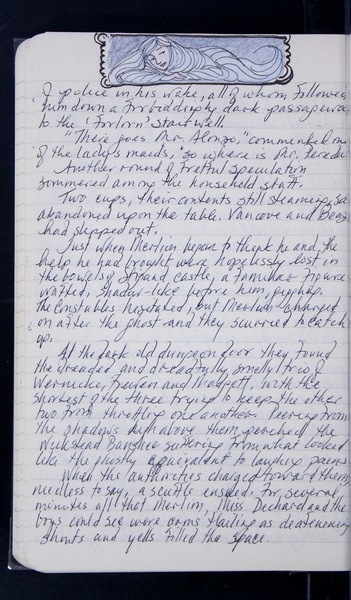 of police in his wake, all of whom followed
him down a forbiddingly dark passageway
to the 'Forlorn' Stairwell.
"There goes Mr. Alonzo," commented one
of the lady's maids, "so where is Mr.
Another round of fretful speculation
among the household staff.
Two cups, their contents still steaming, sat
abandoned upon the table. Vancove and
had slipped out.
Just when Merlin began to think he and the
help he had brought were hopelessly lost in
the bowels of castle, a familiar figure
wafted, shadow-like before him,
The constables hesitated, but Merlin charged
on after the ghost and they scurried to catch
up.
At the dark old dungeon door they found
the dreaded and dreadfully smelly trio of
Wernicke, and Madgett, with the
shortest of the three trying to keep the other
two from throttling one another. Peering from
the shadows high above them perched the
Banshee suffering from what looked
like the ghostly equivalent to laughing pains
When the authorities charged toward them,
needless to say, a scuffle ensued. For several
minutes all that Merlin, Miss Dechard and the
boys could see were arms flailing as deafening
shouts and yells filled the space.